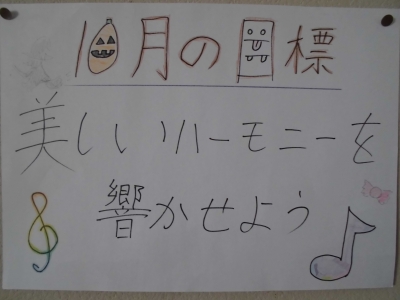 10月の目標
美しいハーモニーを
響かせよう